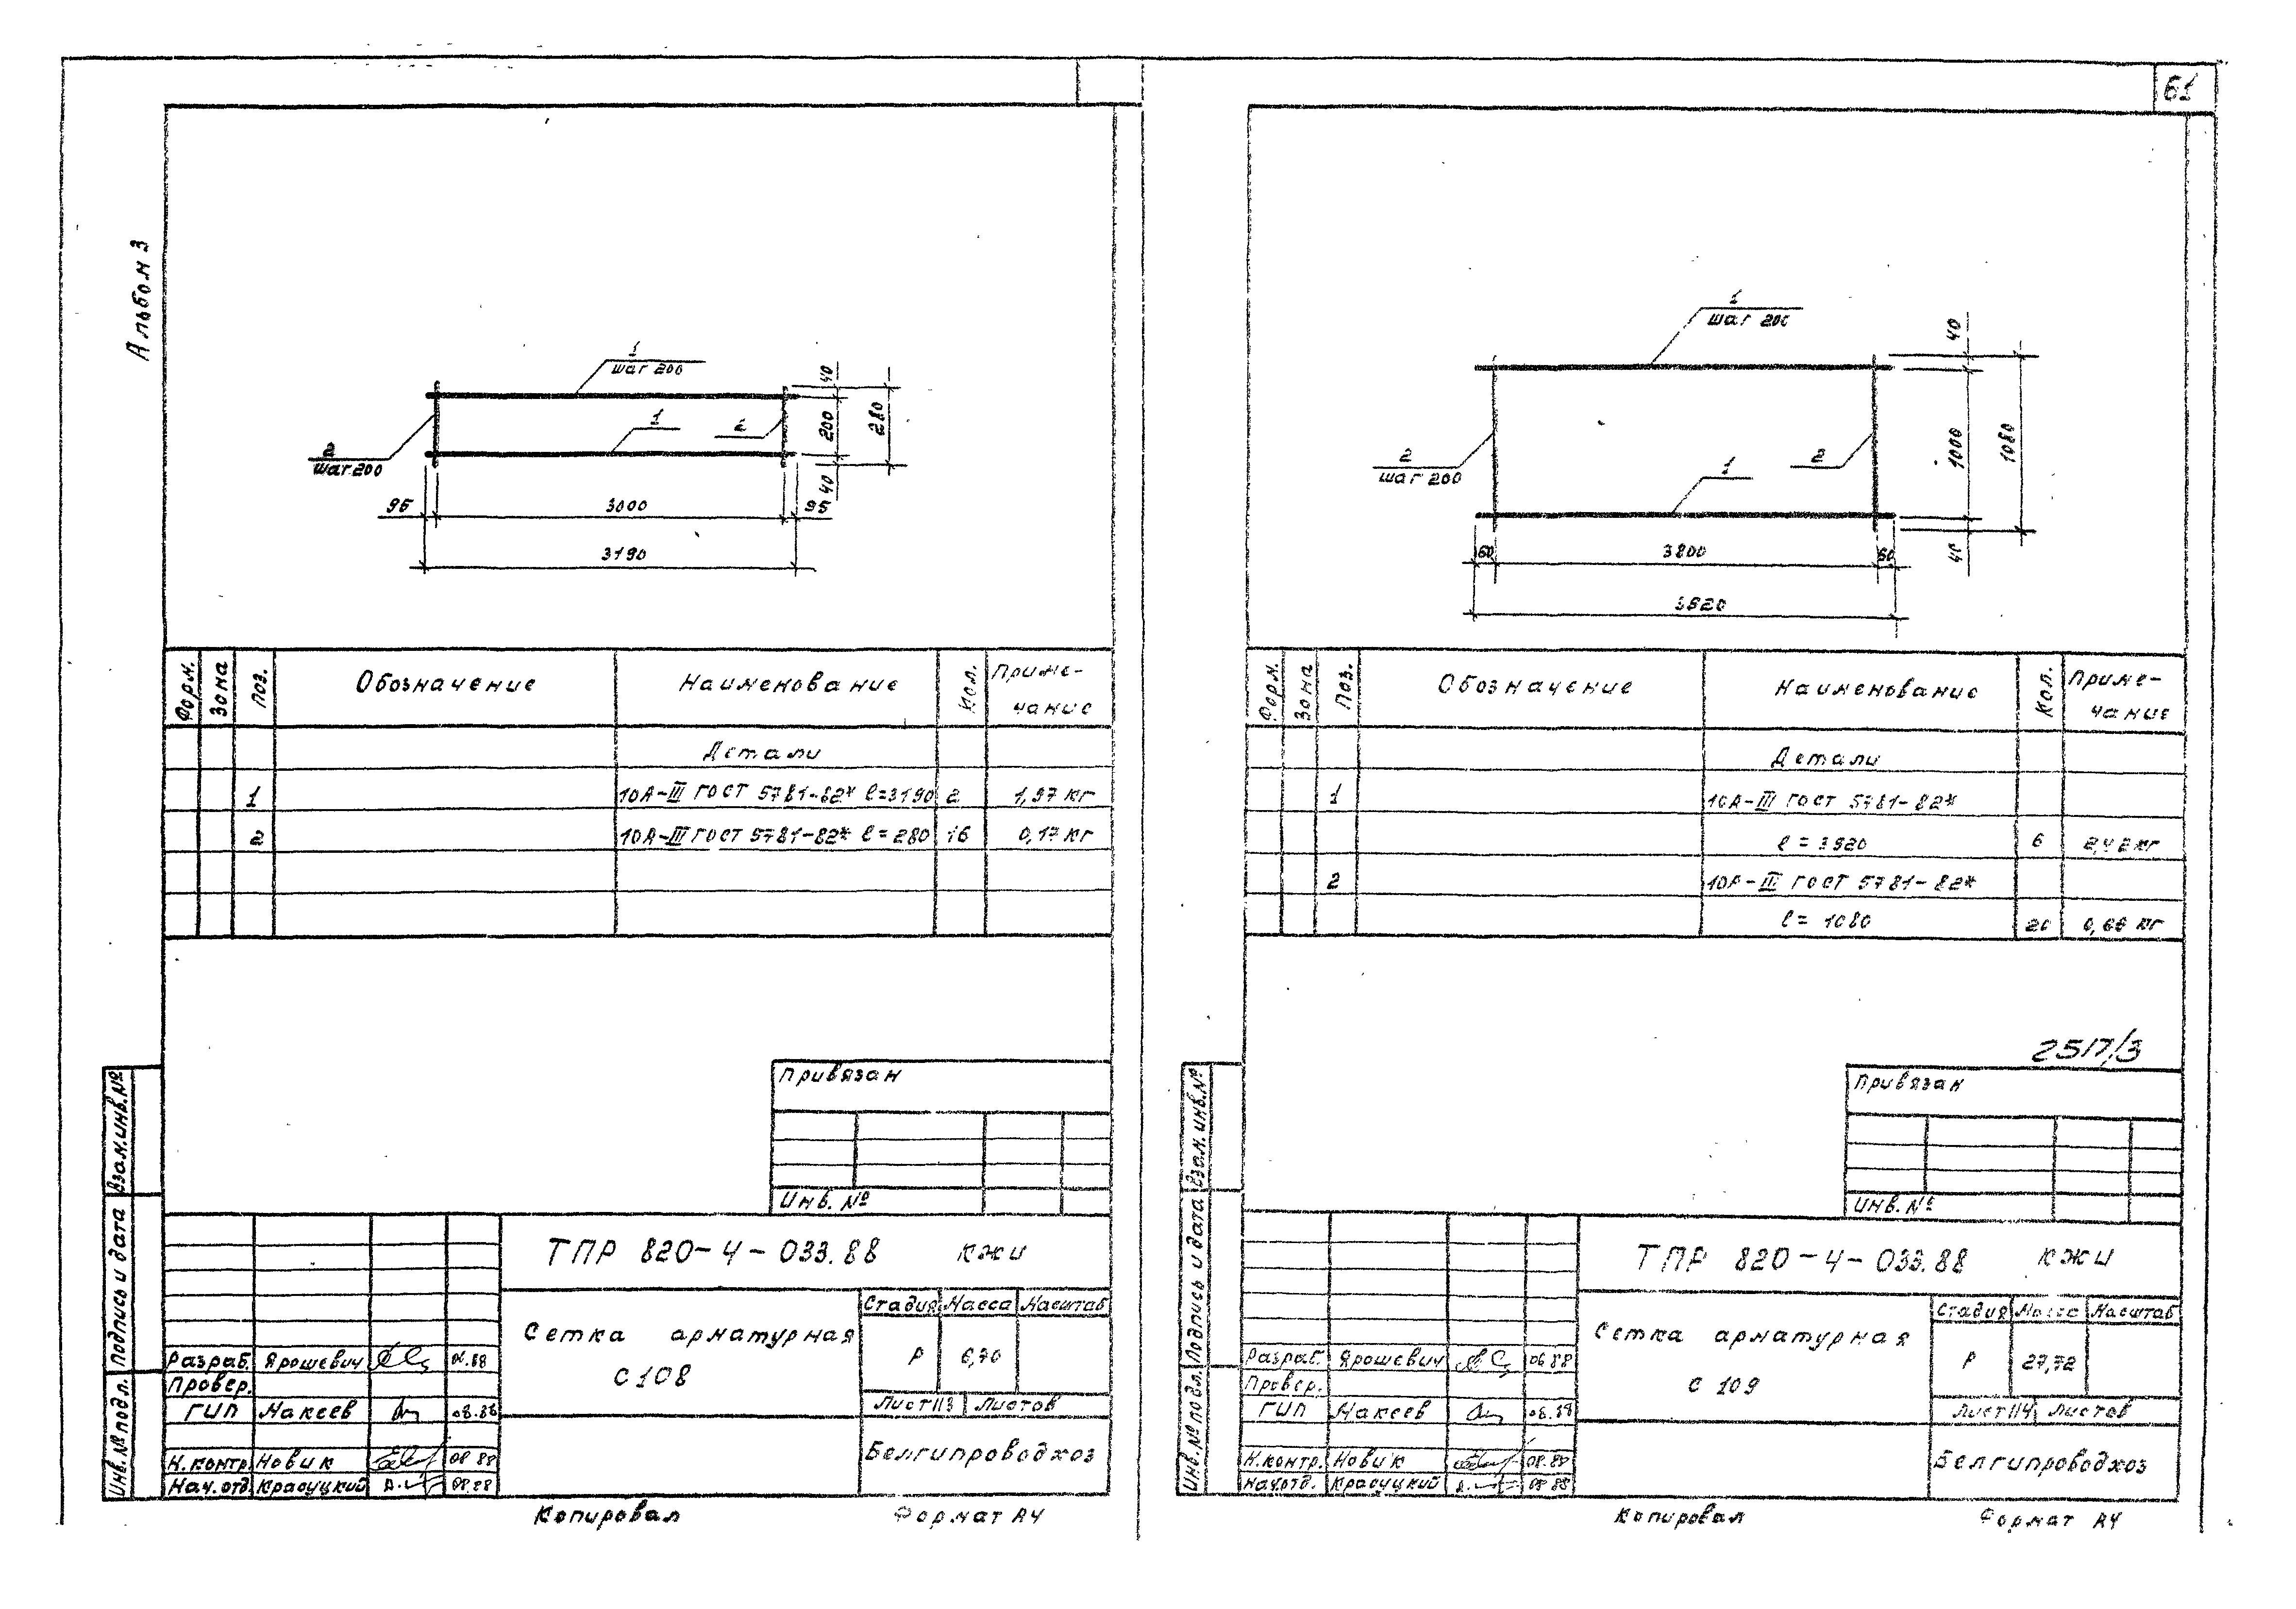 Альбом 3
1
шаг 200
1
2
2
шаг 200
40
200
280
40
95
3000
95
3190
Форм.
Зона
Поз.
Обозначение
Наименование
Кол.
Приме-
чание
Детали
1 10А-III ГОСТ 5781-82* ℓ=3190 2 1,97 кг
2 10А-III ГОСТ 5781-82* ℓ=280 16 0,17 кг
Привязан
Инв. №
Взам.инв.№
Подпись и дата
Инв.№ подл.
ТПР 820-4-033.88 КЖИ
Сетка арматурная
С 108
Стадия Масса Масштаб
Р 6,70
Лист 113 Листов
Белгипроводхоз
Разраб. Ярошевич 06.88
Провер.
ГИП Макеев 08.88
Н.контр. Новик 08 88
Нач.отд. Красуцкий 08.88
Копировал Формат А4
61
1
шаг 200
1
2
2
шаг 200
40
1000
1080
40
60
3800
60
3920
Форм.
Зона
Поз.
Обозначение
Наименование
Кол.
Приме-
чание
Детали
1 10А-III ГОСТ 5781-82*
ℓ = 3920 6 2,42 кг
2 10А-III ГОСТ 5781-82*
ℓ = 1080 20 0,66 кг
2517/3
Привязан
Инв. №
Взам.инв.№
Подпись и дата
Инв.№ подл.
ТПР 820-4-033.88 КЖИ
Сетка арматурная
С 109
Стадия Масса Масштаб
Р 27,72
Лист 114 Листов
Белгипроводхоз
Разраб. Ярошевич 06 88
Провер.
ГИП Макеев 08.88
Н.контр. Новик 08.88
Нач.отд. Красуцкий 08 88
Копировал Формат А4